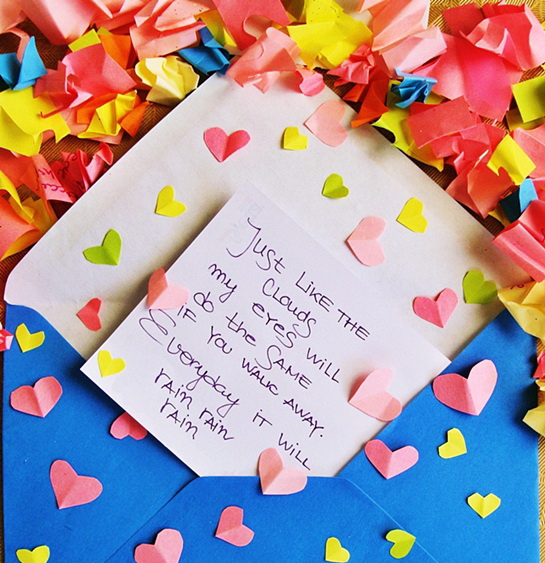 Just LIKE THE
Clouds
my eyes will
do the Same
IF YOU WALK AWAY.
Everyday it will
rain rain
rain